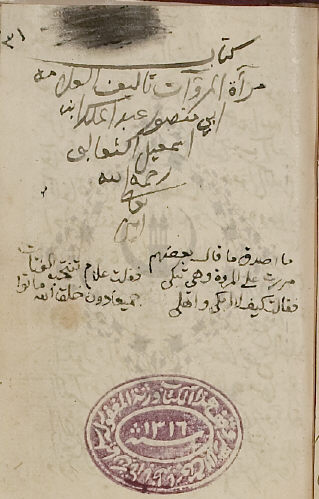 ٣١
كتاب
مرآة المروآت تاليف العلامه
ابي منصور عبد الملك ابن
اسمعيل الثعالبي
رحمه الله
امين
ما اصدق ما قال بعضهم
مررت على المروة وهي تبكي فقلت علام تنتحب الفتاة
فقالت كيف لا ابكي واهلي جميعا دون خلق الله ماتوا
١٣١٦